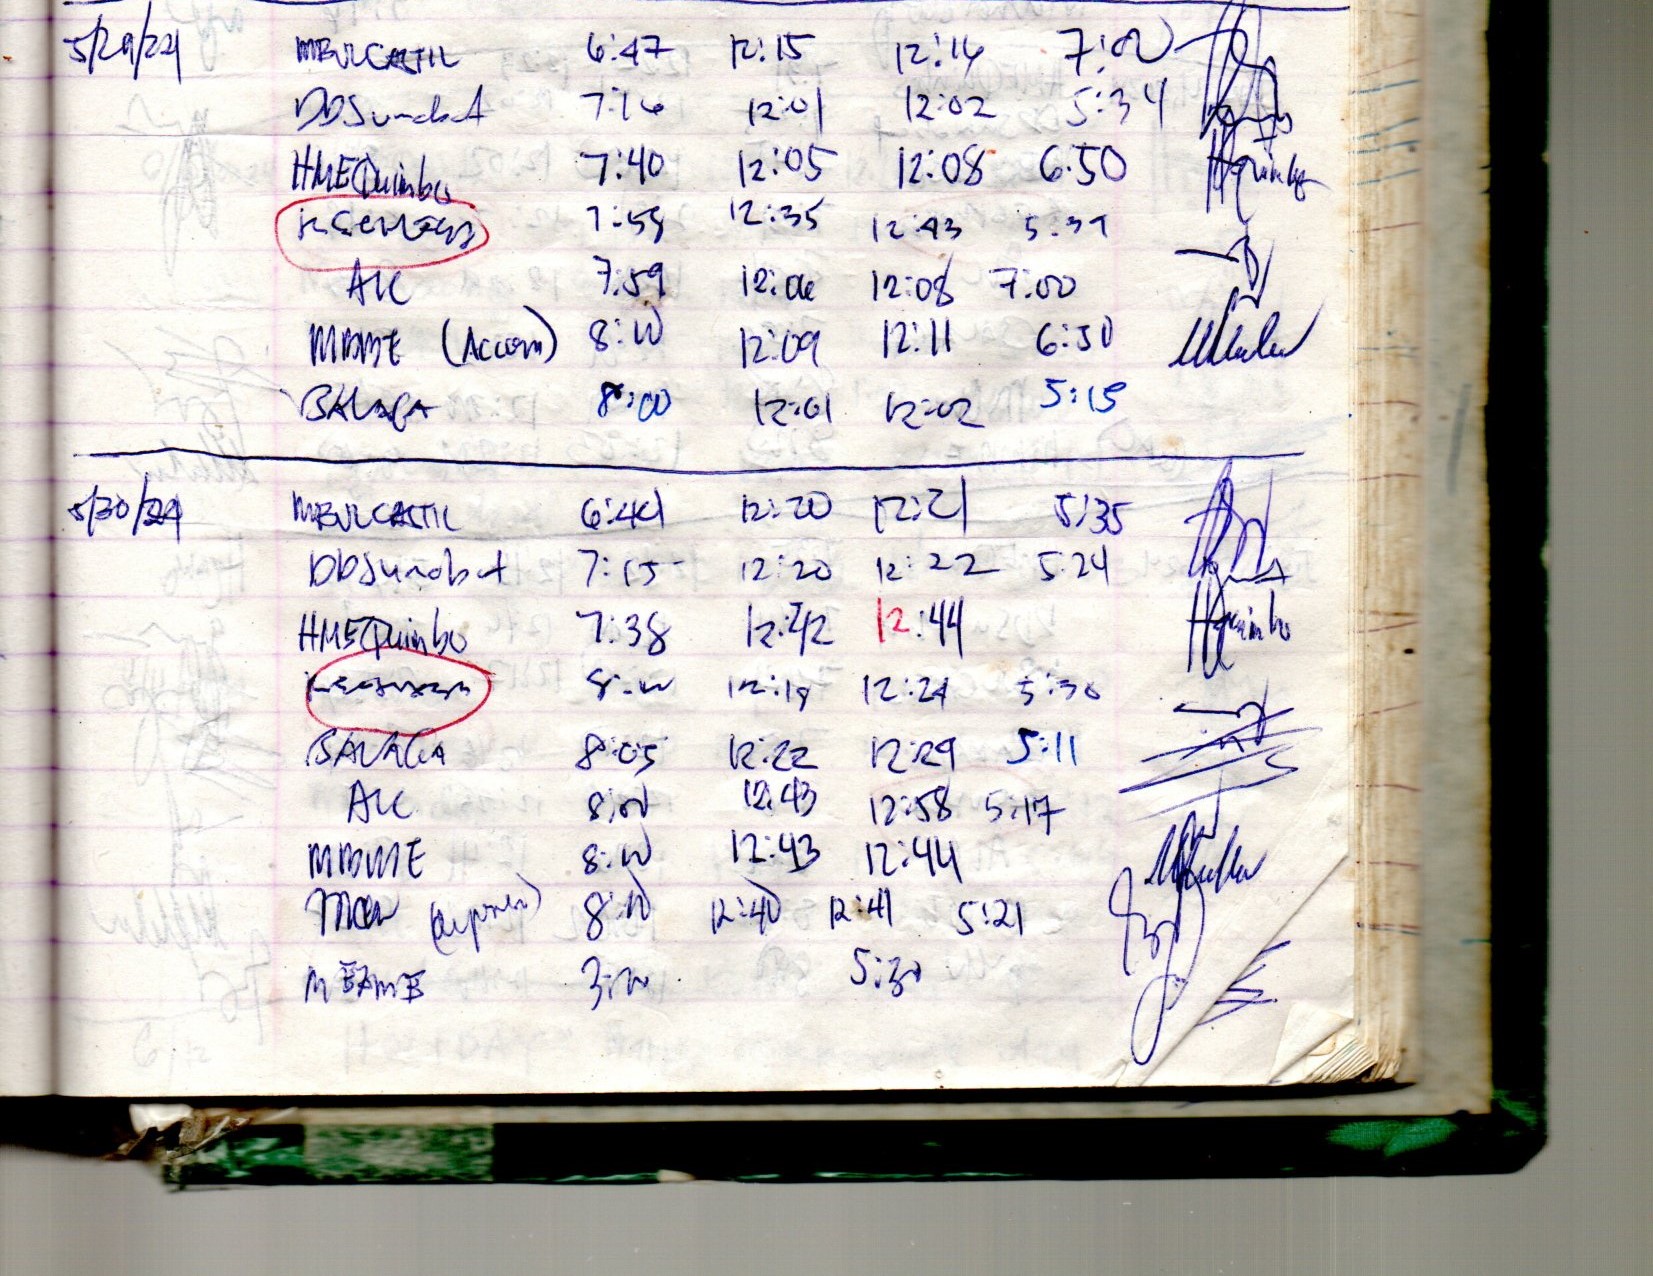 5/29/24 MBVCASTIL 6:47 12:15 12:16 7:00
DDSumobat 7:16 12:01 12:02 5:34
HMEQuimbo 7:40 12:05 12:08 6:50 Hquimbo
7:58 12:35 12:43 5:39
AIC 7:59 12:06 12:08 7:00
MBME (Accom) 8:00 12:09 12:11 6:50
BALAGA 8:00 12:01 12:02 5:15
5/30/24 MBVCASTIL 6:44 12:20 12:21 5:35
DDSumobat 7:15 12:20 12:22 5:24
HMEQuimbo 7:38 12:42 12:44 Hquimbo
8:00 12:19 12:24 5:30
BALAGA 8:05 12:22 12:29 5:11
AIC 8:00 12:43 12:58 5:17
MBME 8:00 12:43 12:44
8:00 12:40 12:41 5:21
3:00 5:30